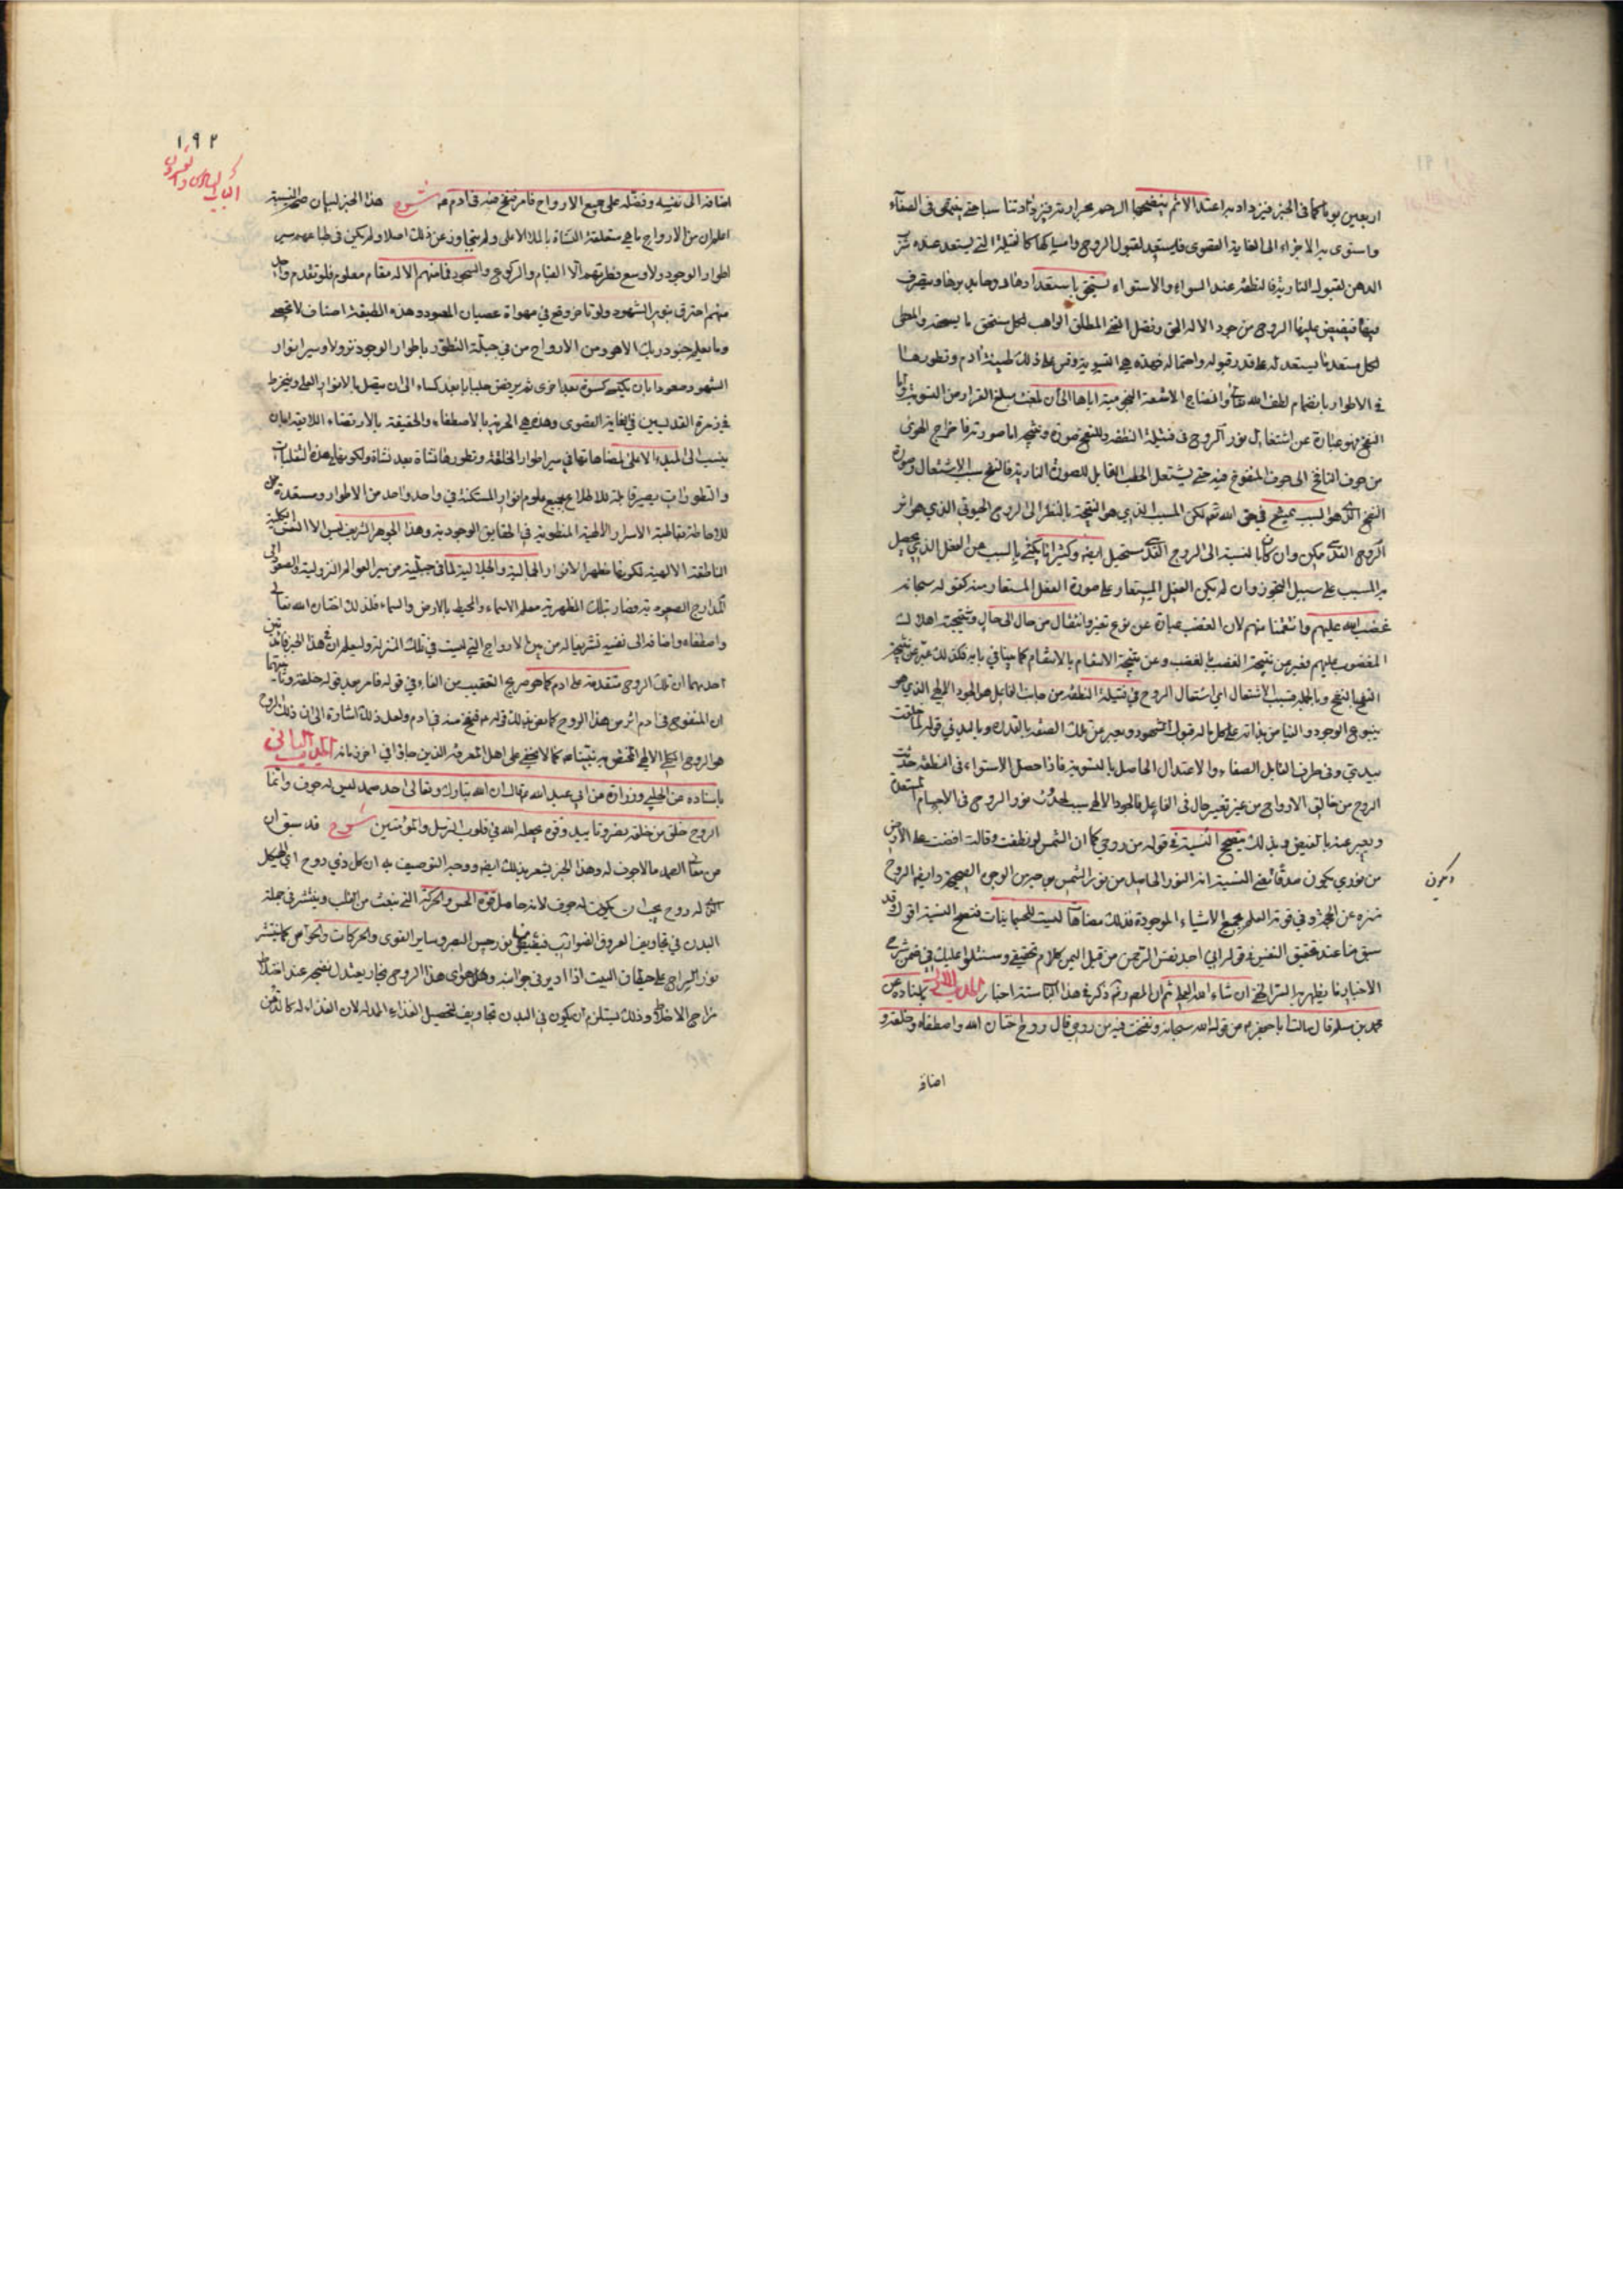 اربعين يوما كما فى الخبز فيزداد به اعتدالا ثم ينضجها الرحم بحرارته فيزداد تناسبا حتى ينتهى فى الصفاء
واستوى به الاجزاء الى الغاية القصوى فليستعد لقبول الروح وامساكها كالفتيلة التى يستعد عند شرب
الدهن لقبول النارية فالنطفة عند السواء والاستواء يستحق باستعدادها روحا يدبرها ويتصرف
فيها فيفيض عليها الروح من جود الاله الحق وفضل الغنى المطلق الواهب لكل مستحق ما يستحقه والمعطى
لكل مستعد ما يستعد له على قدر قبوله واحتماله فهذه هى التسوية وقس على ذلك طينة ادم وتطورها
فى الاطوار بانضمام لطف الله تعالى وانفتاح الاشعة النجومية اياها الى ان بلغت مبلغ القرار من التسوية واما
النفخ فهو عبارة عن اشتعال نور الروح فى فتيلة النطفة وللنفخ صورة ونتيجة اما صورته فاخراج الهوى
من جوف النافخ الى جوف المنفوخ فيه حتى يشتعل الحطب القابل للصورة النارية فالنفخ سبب الاشتعال وصورة
النفخ الذى هو السبب ممتنع فى حق الله ثم لكن المسبب الذى هو النتيجة بالنظر الى الروح الحيوانى الذى هو اثر
الروح القدسى ممكن وان كان بالنسبة الى الروح القدسى مستحيل ايضا وكثيرا ما يكنى بالسبب عن الفعل الذى يحصل
به المسبب على سبيل التجوز وان لم يكن الفعل المستعار على صورة الفعل المستعار منه كقوله سبحانه
غضب الله عليهم وانتقمنا منهم لان الغضب عبارة عن نوع تغير وانتقال من حال الى حال ونتيجته اهلاك
المغضوب عليهم فعبر عن نتيجة الغضب بالغضب وعن نتيجة الانتقام بالانتقام كما بينا فى بابه فكذلك عبر عن نتيجة
النفخ بالنفخ وبالجملة فسبب الاشتعال اى اشتعال الروح فى فتيلة النطفة من جانب الفاعل هو الجود الالهى الذى هو
ينبوع الوجود والفياض بذاته على كل ما له قبول الوجود ويعبر عن تلك الصفة بالقدرة وباليد فى قوله لما خلقت
بيدى وفى طرف القابل الصفاء والاعتدال الحاصل بالتسوية فاذا حصل الاستواء فى النطفة حدثت
الروح من خالق الارواح من غير تغير حال فى الفاعل فالجود الالهى سبب لحدوث نور الروح فى الاجسام المستعدة
ويعبر عنه بالفيض وبذلك يصح النسبة فى قوله من روحى كما ان الشمس لو نطقت وقالت افضت على الارض
من نورى يكون صدقا بمعنى النسبة انه النور الحاصل من نور الشمس من جنس الوجه الصحيحة وايضا الروح
منزه عن الجهة وفى قوته العلم بجميع الاشياء الموجودة فذلك مضاهاة ليست للجسمانيات فتصح النسبة اقول قد
سبق منا عند تحقيق النفس فى قوله انى اجد نفس الرحمن من قبل اليمن كلام تحقيقى وسنتلو عليك فى ضمن شرح
الاخبار ما يظهر به السر الحق ان شاء الله العلى ثم ان المصنف ذكر فى هذا الباب ستة اخبار الحديث الاول باسناده عن
محمد بن مسلم قال سألت ابا جعفر ع عن قول الله سبحانه ونفخت فيه من روحى قال روح اختارن الله واصطفاه وخلقه و
ويكون
اضافه
١٩٢
الباب السادس والعشرون
اضافه الى نفسه وفضله على جميع الارواح فامر فنفخ منه فى ادم ع شرح هذا الخبر لبيان صحة النسبة
اعلم ان من الارواح ما هى متعلقة النشأة بالملأ الاعلى ولم يتجاوز عن ذلك اصلا ولم يكن فى طباعهم سير
اطوار الوجود ولا وسع فطرتهم الا القيام والركوع والسجود فما منهم الا له مقام معلوم فلو تقدم واحد
منهم احترق بنور الشهود ولو تأخر وقع فى مهواة عصيان المعبود وهذه الطبقة اصناف لا تحصى
وما يعلم جنود ربك الا هو ومن الارواح من فى جبلة التطور باطوار الوجود نزولا وسير انوار
الشهود صعودا بان يكتسى كسوة بعد اخرى ثم يرفض جلبابا بعد كساء الى ان يتصل بالانوار العلى وينخرط
فى زمرة القدسيين فى الغاية القصوى وهذه هى الحرية بالاصطفاء والحقيقة بالارتضاء اللائقة بان
ينسب الى المبدء الاعلى لمضاهاتها فى سير اطوار الخلقة وتطورها نشأة بعد نشأة ولكونها بهذه التقلبات
والتطورات يصير قابلة للاطلاع بجميع علوم انوار المستكنة فى واحد واحد من الاطوار ومستعدة
للاحاطة بقاطبة الاسرار الالهية المنطوية فى الحقايق الوجودية وهذا الجوهر الشريف ليس الا النفس الكلية
الناطقة الالهية لكونها مظهر الانوار الجمالية والجلالية لما فى جبلته من سير العوالم النزولية والصعود الى
المدارج الصعودية وصار بتلك المظهرية معلم الاسماء والمحيط بالارض والسماء فلذلك اختاره الله تعالى
واصطفاه واضافه الى نفسه تشريفا له من بين الارواح التى ليست فى تلك المنزلة وليعلم ان فى هذا الخبر فائدتين
احديهما ان تلك الروح متقدمة على ادم كما هو صريح التعقيب من الفاء فى قوله فامر بعد قوله خلقه وثانيتهما
ان المنفوخ فى ادم اثر من هذا الروح كما نص بذلك قوله ع فنفخ منه فى ادم ولعل ذلك اشارة الى ان ذلك الروح
هو الروح الكلى الالهى المختص به نبينا ص كما لا يخفى على اهل المعرفة الذين جاؤا فى اخر زمانه الحديث الثانى
باسناده عن الحلبى وزرارة عن ابى عبد الله ع قال ان الله تبارك وتعالى احد صمد ليس له جوف وانما
الروح خلق من خلقه نصر وتاييد وقوة يجعله الله فى قلوب الرسل والمؤمنين شرح قد سبق ان
من معانى الصمد ما لا جوف له وهذا الخبر يشعر بذلك ايضا ووجه التوصيف به ان كل ذى روح اى الهيكل
الذى له روح يجب ان يكون له جوف لانه حامل قوة الحس والحركة التى تنبعث من القلب وينتشر فى جملة
البدن فى تجاويف العروق الضوارب فيفيض منها نور حس البصر وساير القوى والحركات والحواس كما ينتشر
نور السراج على حيطان البيت اذا ادير فى جوانبه وهل هوى هذا الروح بخار يعتدل نضجه عند اعتدال
مزاج الاخلاط وذلك يستلزم ان يكون فى البدن تجاويف لتحصيل الغذاء المدلة لان الغذاء له كالدهن